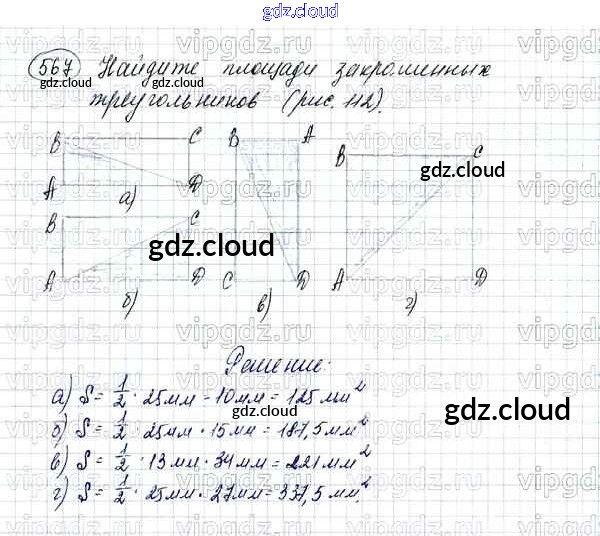 gdz.cloud
567 Найдите площади закрашенных
треугольников (рис. 112).
B C A D а)
B C A D б)
B A C D в)
B C A D г)
gdz.cloud
gdz.cloud
Решение:
а) S = 1/2 · 25мм - 10мм = 125 мм²
б) S = 1/2 · 25мм · 15мм = 187,5мм²
в) S = 1/2 · 13мм · 34мм = 221мм²
г) S = 1/2 · 25мм · 27мм = 337,5мм².
gdz.cloud
gdz.cloud